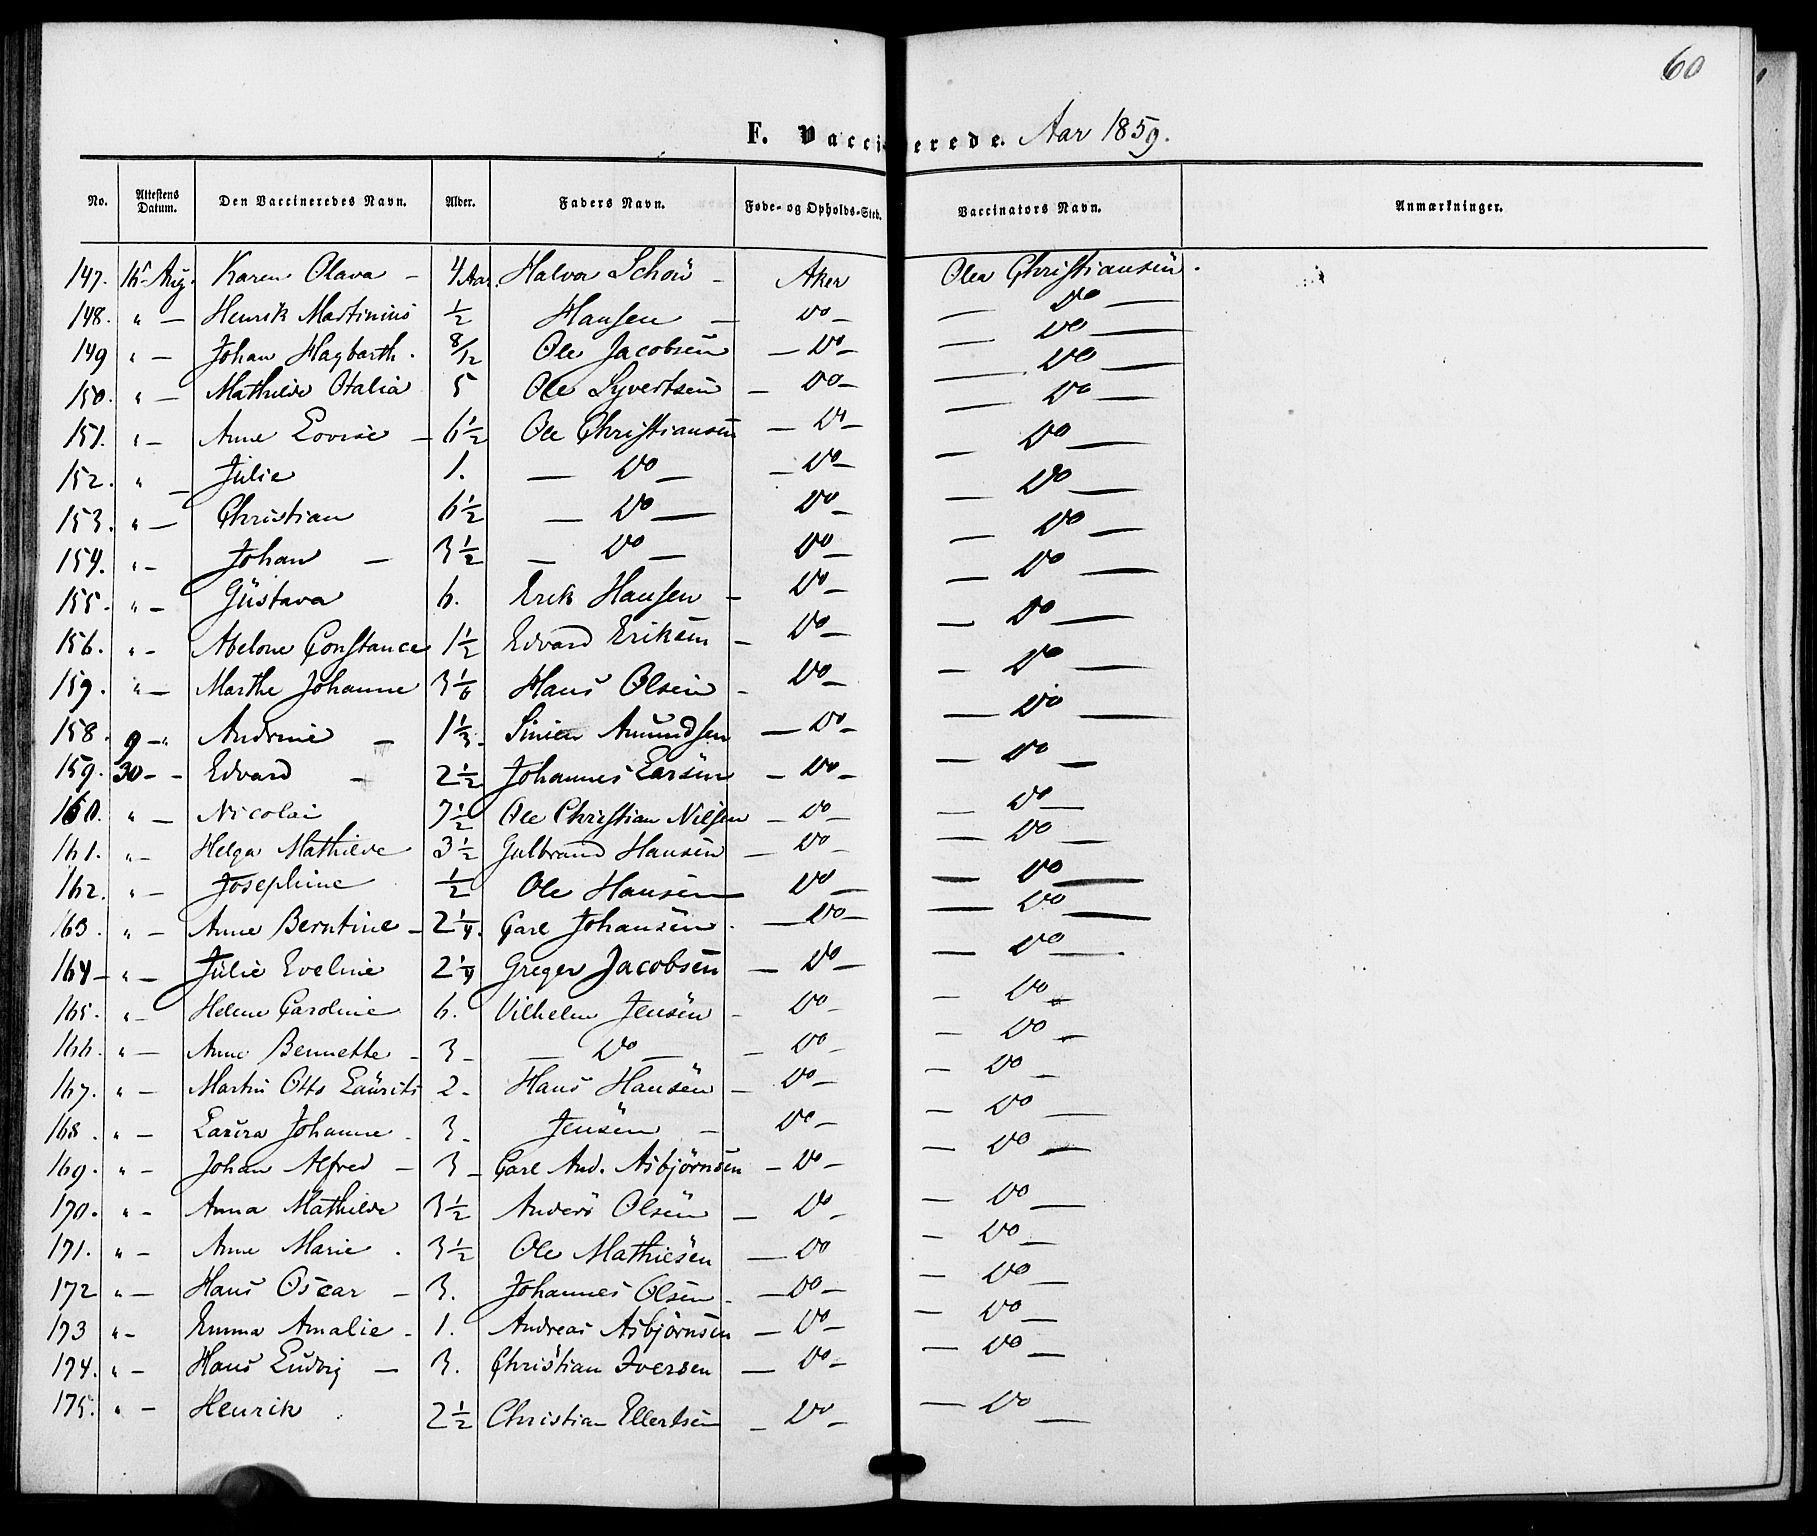 60
F. Vaccinerede. Aar 1859.
No. Attestens Datum. Den Vaccineredes Navn. Alder. Faders Navn. Føde- og Opholds-Sted. Vaccinators Navn. Anmærkninger.
147. Aug. Karen Olava - 4 Aar. Halvor - Aker Ole Christiansen.
148. " — Henrik Martinius ½ Hansen — Do — — Do —
149 " — Johan Hagbarth. 8/12 Ole Jacobsen — Do — — Do —
150. " — Mathilde Otalia 5 Ole Syvertsen — Do — — Do —
151. " — Anne Lovise — 6½ Ole Christiansen — Do — — Do —
152. " — Julie 1. — Do — — Do — — Do —
153. " — Christian 6½ — Do — Do — — Do —
154. " — Johan — 3½ — Do — Do — — Do —
155. " — Gustava 6. Erik Hansen — Do — — Do —
156. " — Abelone Constance 1½ Edvard Eriksen — Do — — Do —
157. " — Marthe Johanne 3 1/6 Hans Olsen — Do — — Do —
158. 9 — " Andrine — 1⅓. Amundsen — Do — — Do —
159. 30 - - Edvard — 2½ Johannes Larsen — Do — — Do —
160. " — Nicolai 7½ Ole Christian Nilsen — Do — — Do —
161. " — Helga Mathilde 3½ Gulbrand Hansen — Do — — Do —
162. " — Josephine ½ Ole Hansen Do — — Do —
163. " — Anne Berntine — 2¼. Carl Johansen. — Do — — Do —
164 — " — Julie Eveline 2¼ Greger Jacobsen — Do — — Do —
165. " — Helene Caroline 6. Vilhelm Jensen — Do — — Do —
166. " — Anne Bennette — 3 — — Do — — Do — — Do —
167. " — Martin Otto Laurits 2 - Hans Hansen — Do — — Do —
168. " — Laura Johanne. 3 - Jensen — Do — — Do —
169. " — Johan Alfred — 3 — Carl And. Asbjørnsen — Do — — Do —
170. " — Anna Mathilde 3½ Anders Olsen — Do — — Do —
171. " — Anne Marie. 3½ Ole Mathiesen — Do — Do —
172 " — Hans Oscar — 3. Johannes Olsen — Do — — Do —
173 " — Emma Amalie — 1. Andreas Asbjørnsen — Do — — Do —
174. " — Hans Ludvig — 3. Christian Iversen — Do — — Do —
175. " — Henrik. 2½ Christian Ellertsen — Do — — Do —